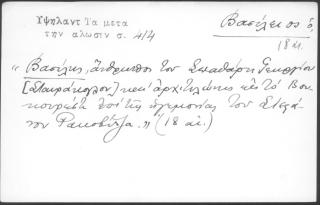 Υψηλαντ Τα μετα
την αλωσιν σ. 414
Βασίλειος ὁ,
18 αἰ.
"Βασίλης, ἄνθρωπος τοῦ Σπαθάρη Γεωργίου
[Σταυράκογλου] καί ἀρχιτελώνης εἰς τό Βου-
κουρέστι ἐπί τῆς ἡγεμονίας τοῦ Στεφά-
νου Ρακοβίτζα." (18 αἰ.)